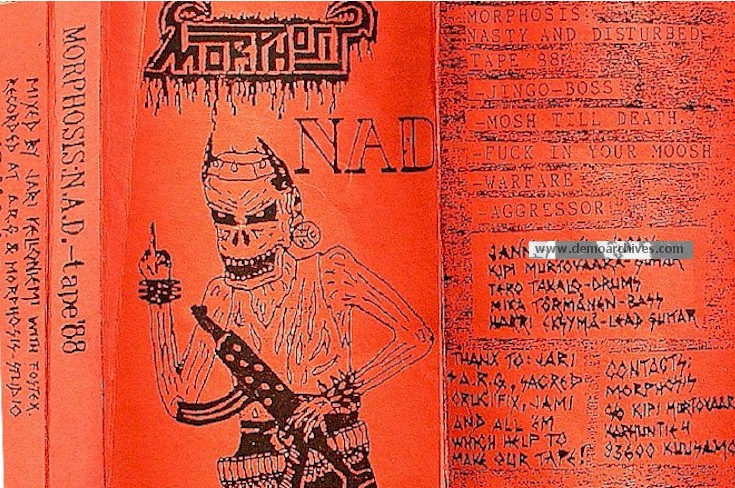 MORPHOSIS
NAD
MORPHOSIS: N.A.D.-tape'88
MIXED BY JARI WITH FOSTEX
RECORDED AT A.R.G & MORPHOSIS-STUDIO
MORPHOSIS:
NASTY AND DISTURBED
TAPE 88
-JINGO-BOSS
-MOSH TILL DEATH.
-FUCK IN YOUR MOOSH
-WARFARE
-AGGRESSOR
www.demoarchives.com
KIPI MURTOVAARA-
TERO TAKALO-DRUMS
MIKA TÖRMÄNEN-BASS
HARRI -LEAD
THANX TO: JARI
A.R.G, SACRED
CRUCIFIX, JAMI
AND ALL 'EM
WHICH HELP TO
MAKE OUR TAPE!
CONTACTS:
MORPHOSIS
C/O KIPI MURTOVAAR
KARHUNTIE 4
93600 KUUSAMO